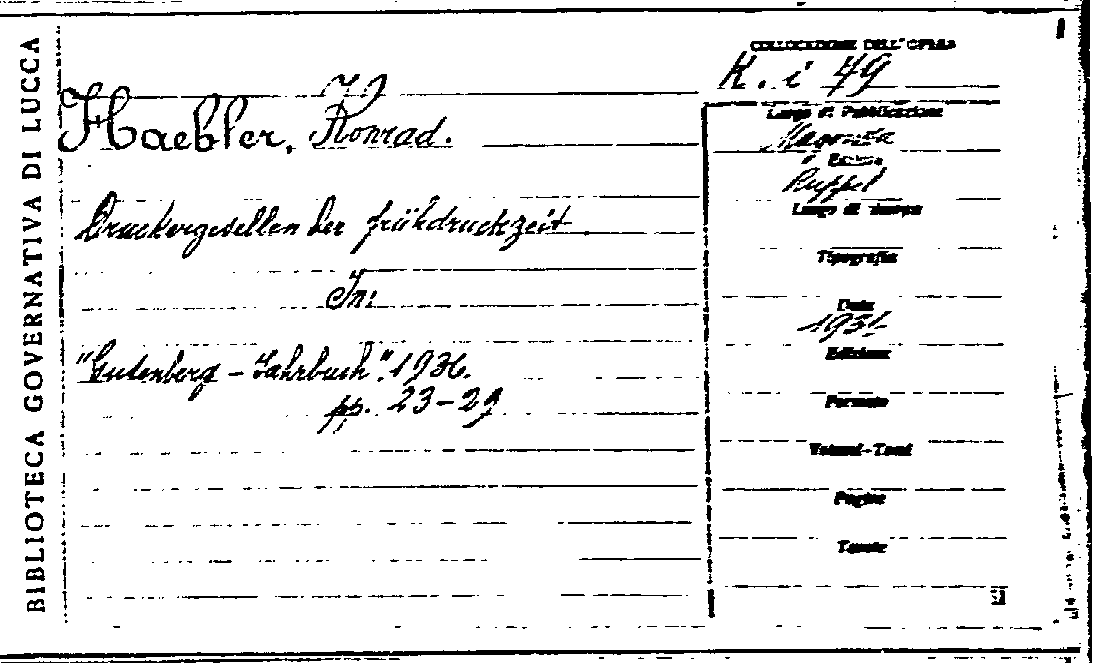 BIBLIOTECA GOVERNATIVA DI LUCCA
Haebler, Konrad.
Druckergesellen der frühdruckzeit.
In:
"Gutenberg - Jahrbuch". 1936.
pp. 23-29
COLLOCAZIONE DELL'OPERA
K. i 49
Luogo di Pubblicazione
Magonza
Editore
Ruppel
Luogo di stampa
Tipografia
Data
Edizione
Formato
Volumi-Tomi
Pagine
Tavole